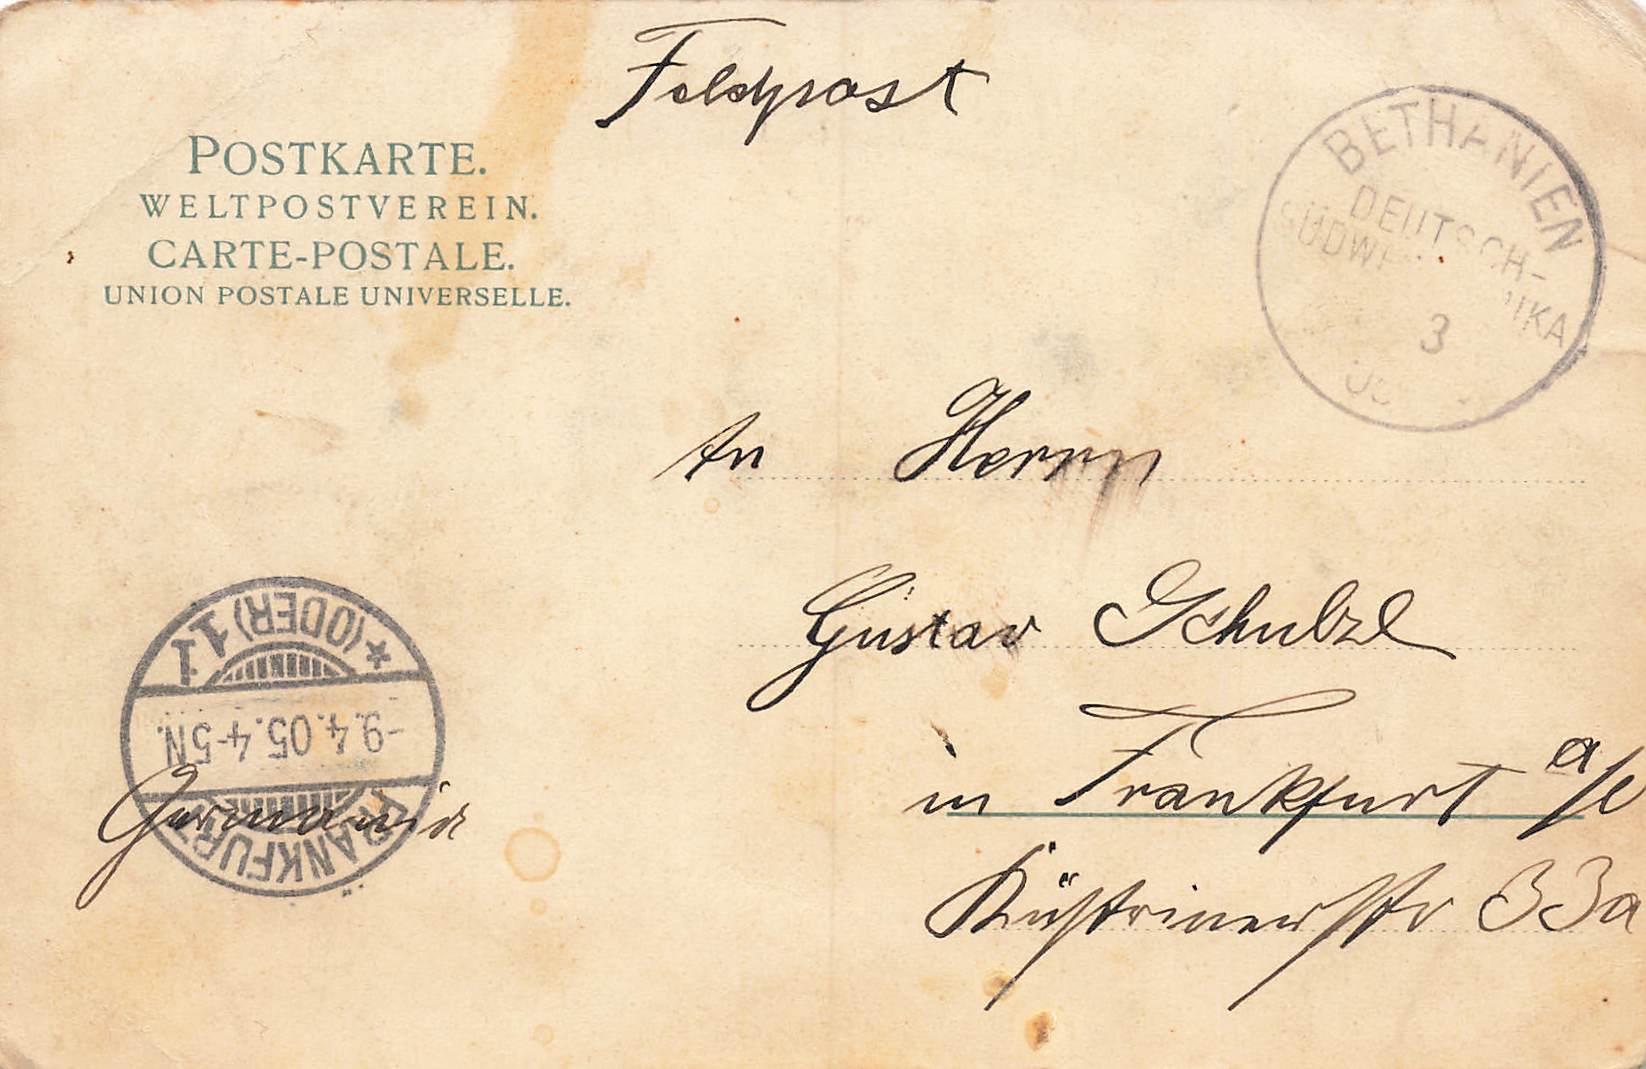 Feldpost
POSTKARTE.
WELTPOSTVEREIN.
CARTE-POSTALE.
UNION POSTALE UNIVERSELLE.
BETHANIEN
DEUTSCH-
3
An Herrn
Gustav Schulze
in Frankfurt a/
Küstrinerstr 33a
Germania
FRANKFURT
-9.4.05.4-5N.
*(ODER)11